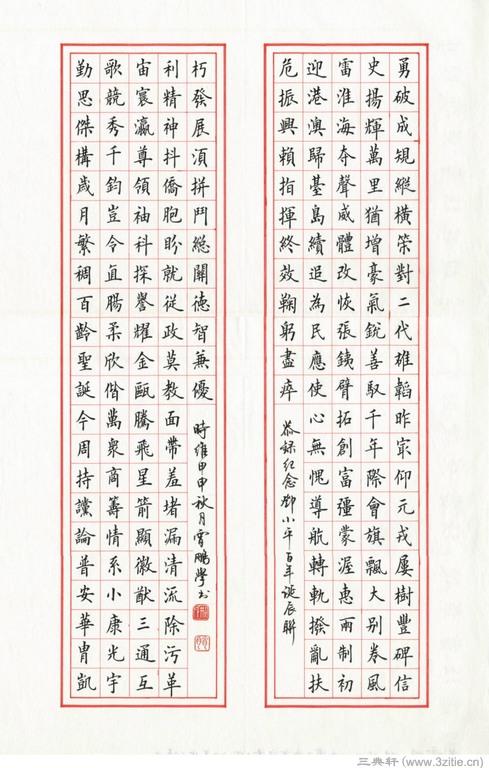 勇破成規縱橫策對二代雄韜昨冣仰元戎屢樹豐碑信
史揚輝萬里猶增豪氣銳善馭千年際會旗飄大別卷風
雷淮海夺聲威體改恢張銕臂拓創富疆蒙渥惠雨制初
迎港澳歸臺島續追為民應使心無愧導航轉軌撥亂扶
危振興賴指揮終效鞠躬盡瘁
恭録紀念鄧小平百年诞辰聯
勤思傑構歲月繁稠百齡聖誕今周持讜論普安華胄凱
歌競秀千鈞豈令直腸柔欣偕萬衆商籌情系小康光宇
宙寰瀛尊領袖科探譽耀金甌騰飛星箭顯徽猷三通互
利精神抖僑胞盼就從政莫教面帶羞堵漏清流除污革
朽發展須拼鬥總關德智兼優
時維甲申秋月雷鵬學书
三典轩 (www.3zitie.cn)